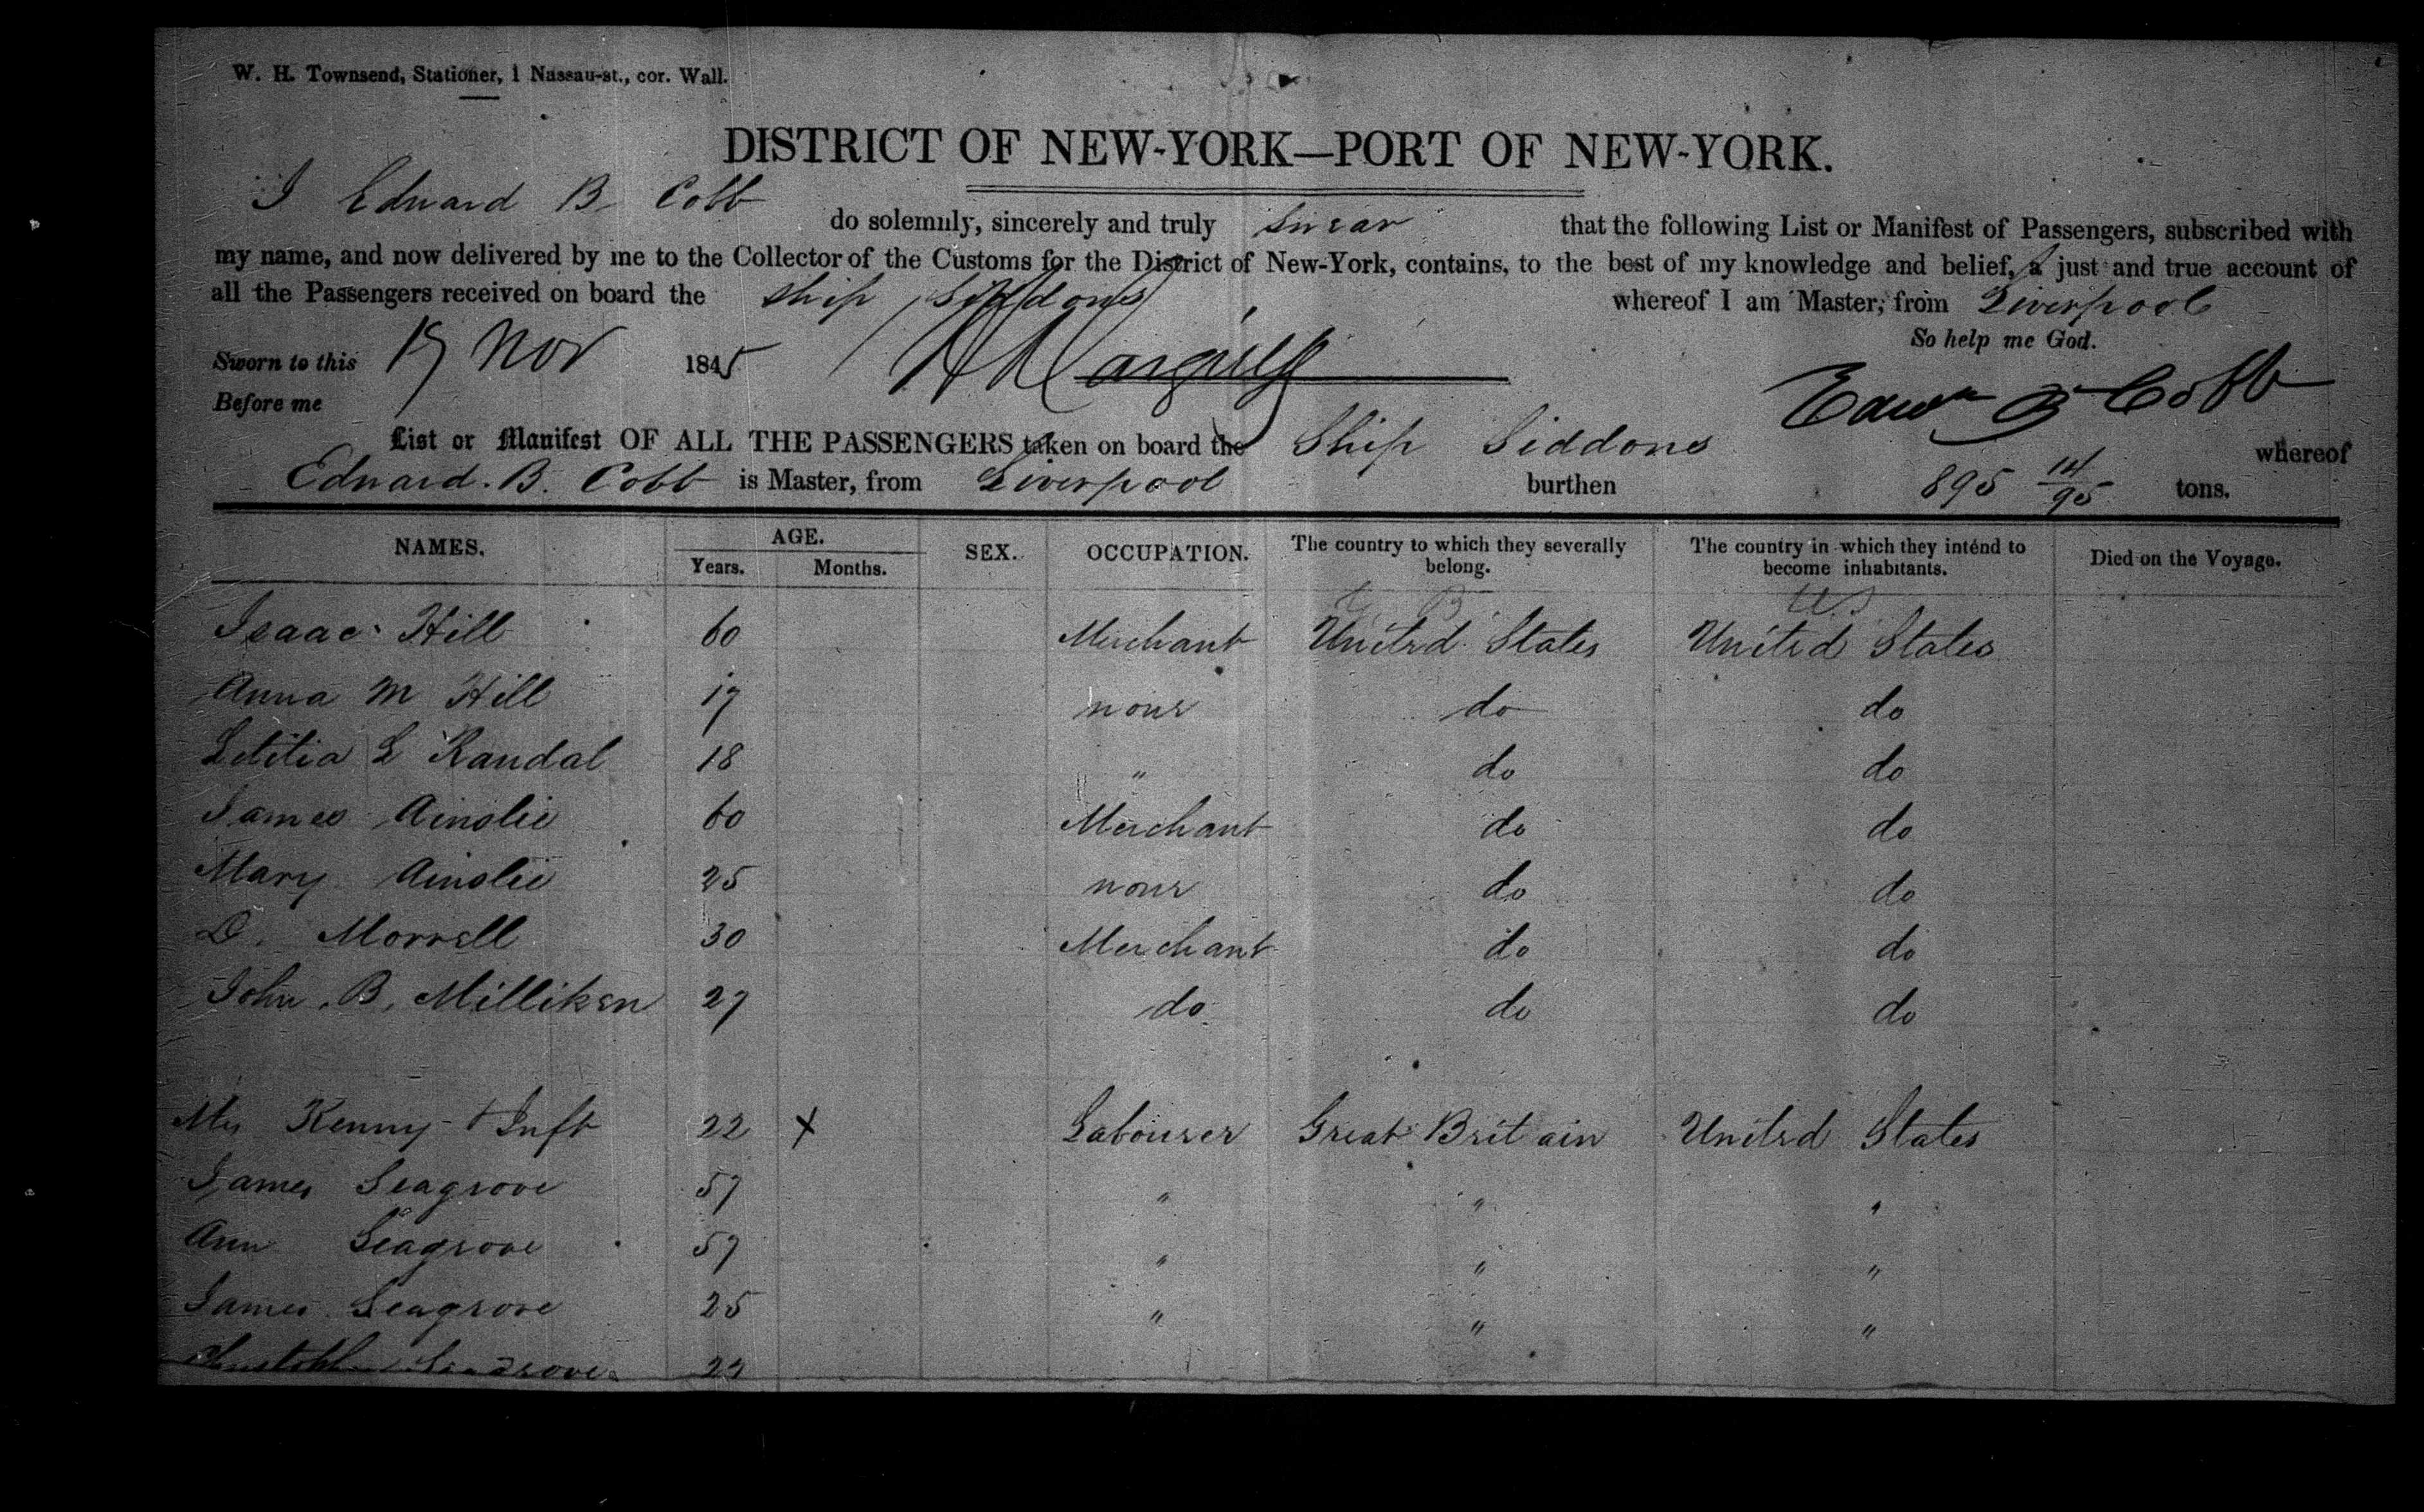 W. H. Townsend, Stationer, 1 Nassau-st., cor. Wall.
DISTRICT OF NEW-YORK—PORT OF NEW-YORK.
I Edward B. Cobb do solemnly, sincerely and truly swear that the following List or Manifest of Passengers, subscribed with
my name, and now delivered by me to the Collector of the Customs for the District of New-York, contains, to the best of my knowledge and belief, a just and true account of
all the Passengers received on board the ship Siddons whereof I am Master, from Liverpool
So help me God.
Sworn to this 19 Nov 1845
Before me
Edwd B Cobb
List or Manifest OF ALL THE PASSENGERS taken on board the Ship Siddons whereof
Edward. B. Cobb is Master, from Liverpool burthen 895 14/95 tons.
NAMES. AGE. Years. Months. SEX. OCCUPATION. The country to which they severally belong. The country in which they intend to become inhabitants. Died on the Voyage.
G B US
Isaac Hill 60 Merchant United States United States
Anna M Hill 17 none do do
Letitia L Randal 18 " do do
James Ainslie 60 Merchant do do
Mary Ainslie 25 none do do
D. Morrell 30 Merchant do do
John. B. Milliken 27 do do do
Mrs Kenny + Inft 22 X Labourer Great Britain United States
James Seagrove 57 " " "
Ann Seagrove 57 " " "
James Seagrove 25 " " "
Seagrove